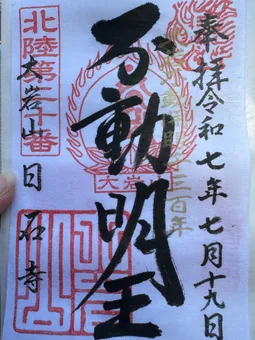 奉拝 令和七年七月十九日
三百年
不動明王
大岩山
北陸第二十番
大岩山日石寺